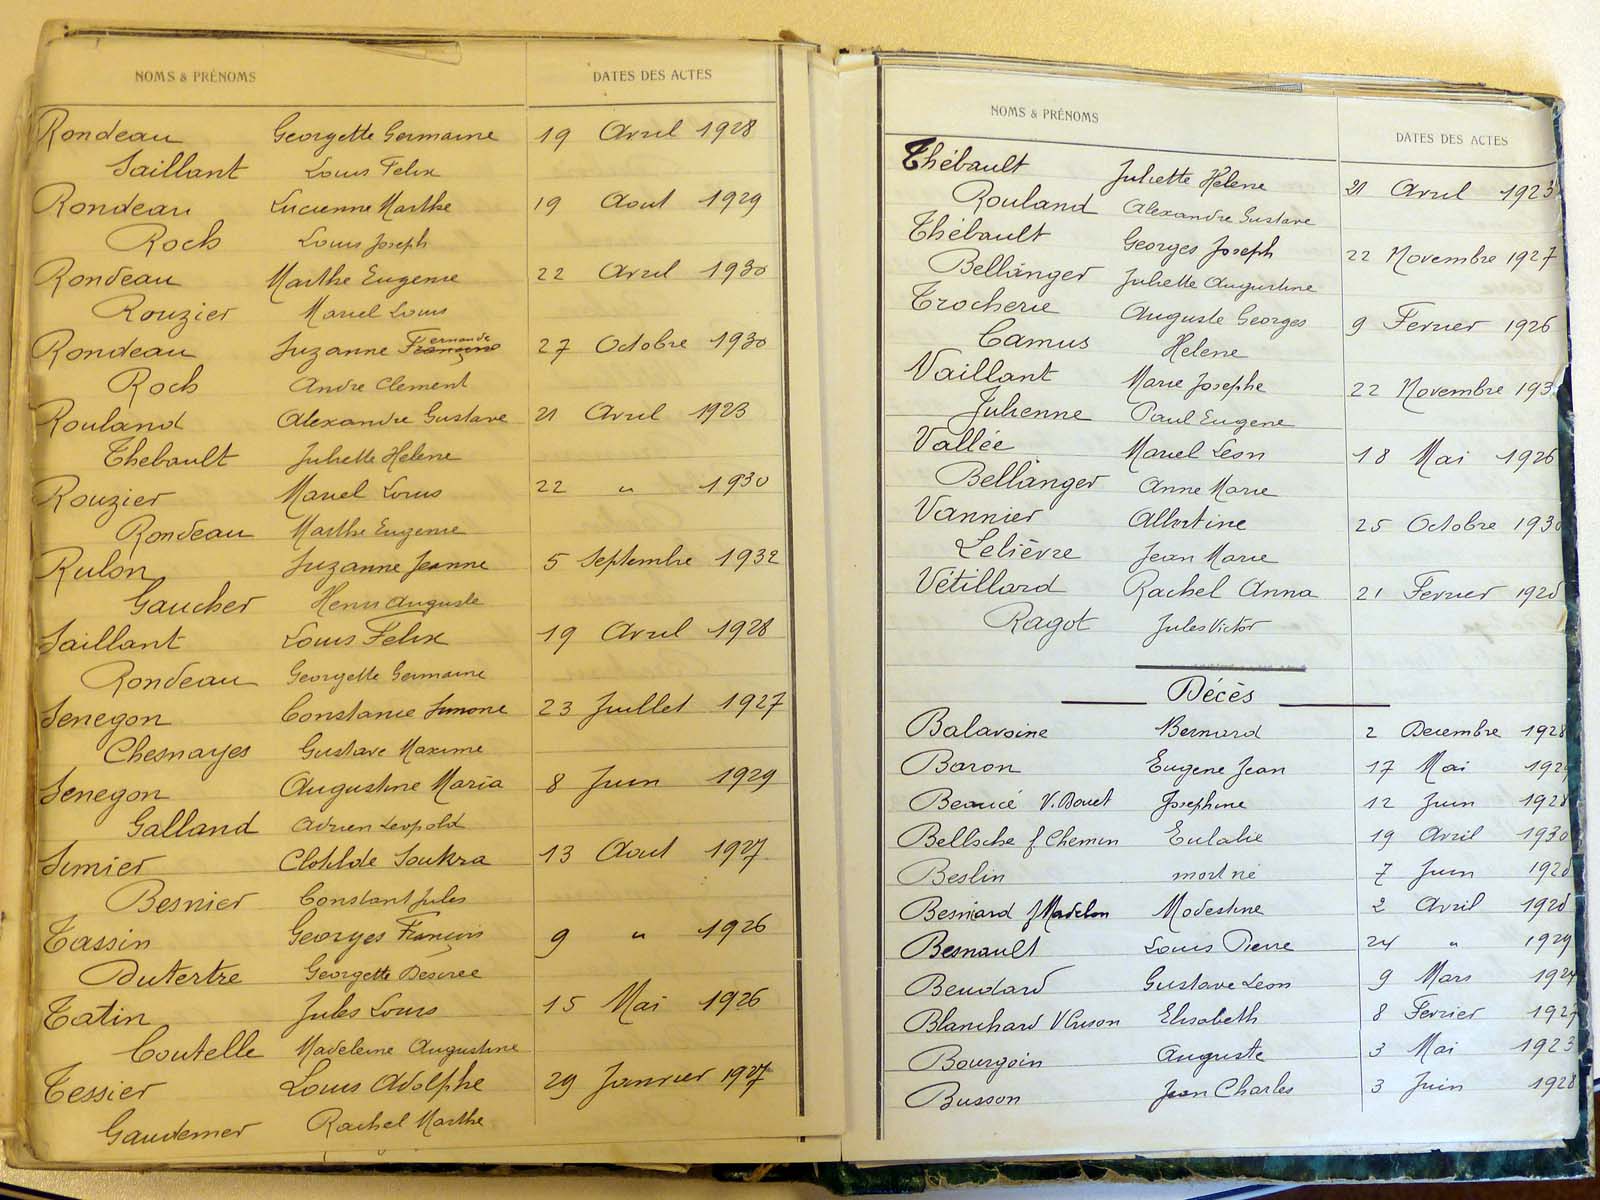 NOMS & PRÉNOMS DATES DES ACTES
Rondeau Georgette Germaine 19 Avril 1928
Saillant Louis Felix
Rondeau Lucienne Marthe 19 Aout 1929
Roch Louis Joseph
Rondeau Marthe Eugenie 22 Avril 1930
Rouzier Marcel Louis
Rondeau Suzanne Fernande 27 Octobre 1930
Roch Andre Clement
Rouland Alexandre Gustave 21 Avril 1923
Thebault Juliette Helene
Rouzier Marcel Louis 22 " 1930
Rondeau Marthe Eugenie
Rulon Suzanne Jeanne 5 Septembre 1932
Gaucher Henri Auguste
Saillant Louis Felix 19 Avril 1928
Rondeau Georgette Germaine
Senegon Constance Simone 23 Juillet 1927
Chesnayes Gustave Maxime
Senegon Augustine Maria 8 Juin 1929
Galland Adrien Leopold
Simier Clotilde Soukra 13 Aout 1927
Besnier Constant Jules
Tassin Georges François 9 " 1926
Dutertre Georgette Desiree
Tatin Jules Louis 15 Mai 1926
Coutelle Madeleine Augustine
Tessier Louis Adolphe 29 Janvier 1927
Gaudemer Rachel Marthe
NOMS & PRÉNOMS DATES DES ACTES
Thébault Juliette Helene 21 Avril 1923
Rouland Alexandre Gustave
Thébault Georges Joseph 22 Novembre 1927
Bellanger Juliette Augustine
Trocherie Auguste Georges 9 Fevrier 1926
Camus Helene
Vaillant Marie Josephe 22 Novembre 193
Julienne Paul Eugene
Vallée Marcel Leon 18 Mai 1926
Bellanger Anne Marie
Vannier Albertine 25 Octobre 1930
Lelièvre Jean Marie
Vétillard Rachel Anna 21 Fevrier
Ragot Jules Victor
Décès
Balavoine Bernard 2 Decembre 1928
Baron Eugene Jean 17 Mai
Beaucé V. Bouet Josephine 12 Juin 1928
Bellsche f Chemin Eulalie 19 Avril 1930
Beslin mort né 7 Juin
Besniard f Madelon Modestine 2 Avril
Besnault Louis Pierre 24 " 1929
Beudard Gustave Leon 9 Mars
Blanchard V Cruson Elisabeth 8 Février 1927
Bourgoin Auguste 3 Mai 1923
Busson Jean Charles 3 Juin 1928